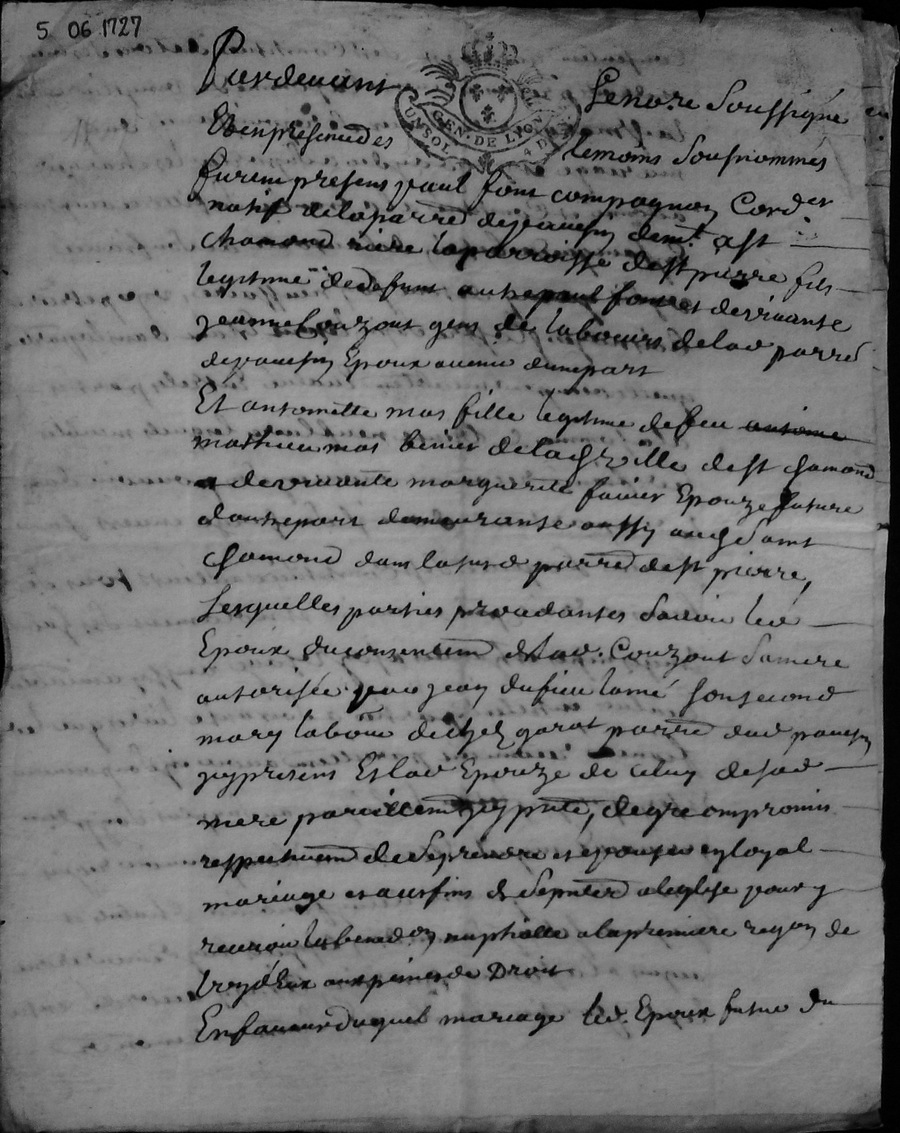 5 06 1727
Pardevant Le no.re Soussigné
GEN. DE LYON
UN SOL 4 D
Et en presence des temoins Sousnommés
furent presens paul font compagnon Cord.er
natif de la parr.e de jeauesin dem.t a St
Chamond riere la parroisse de St pierre fils
legitime de defunt autre paul font et de vivante
jeanne Couzout gens de labeurs de lad parre
de Epoux avenir dunepart
Et antoinette mas fille legitime de feu antoine
mathieu mas de lad ville de St Chamond
et de vivante marguerite favier Epouze future
dautrepart demeurante aussy aud Saint
Chamond dans la susd parre de St pierre,
Lesquelles parties procedantes Savoir led
Epoux du consentem de lad. Couzout Sa mere
autorisée par jean dufieu lamé Son second
mary labour de parre dud
jcy present Et lad Epouze de celuy de sad
mere pareillem jcy pnte, de gre ont promis
respectivem de Se prendre et epouser en loyal
mariage et aux fins de Se pnter a leglise pour y
recevoir la bened.on nuptialle a la premiere reqon de
lun deux aux peines de Droit
En faveur duquel mariage led. Epoux futur du